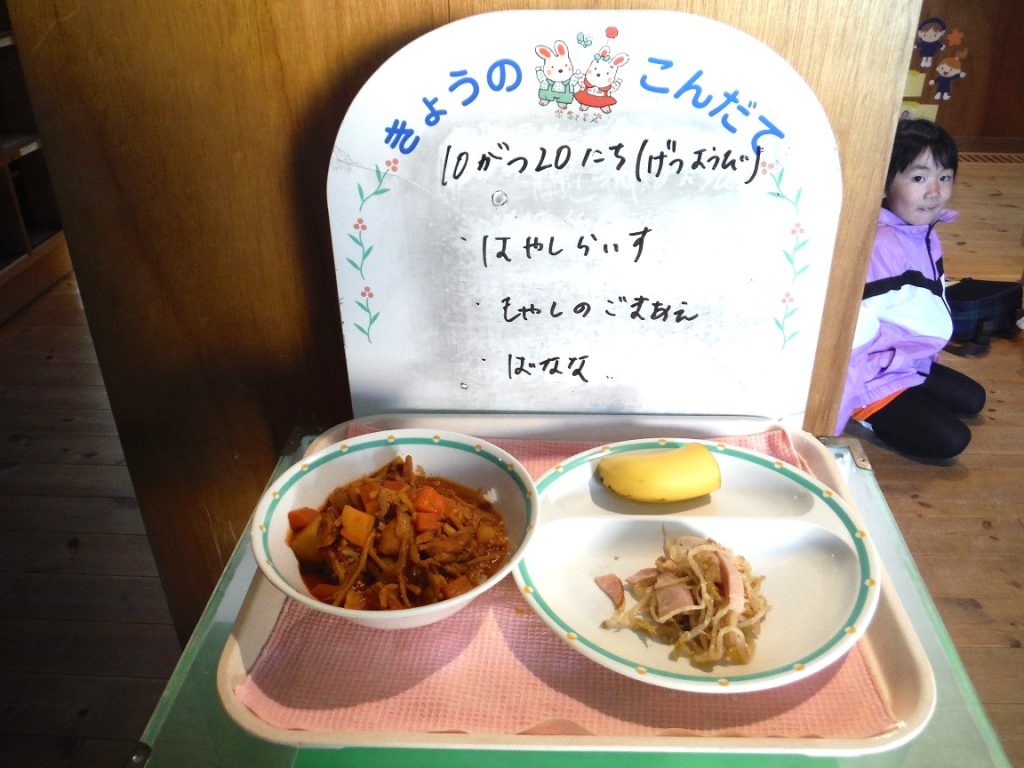 きょうの こんだて
10がつ20にち(げつようび)
・はやしらいす
・もやしのごまあえ
・ばなな